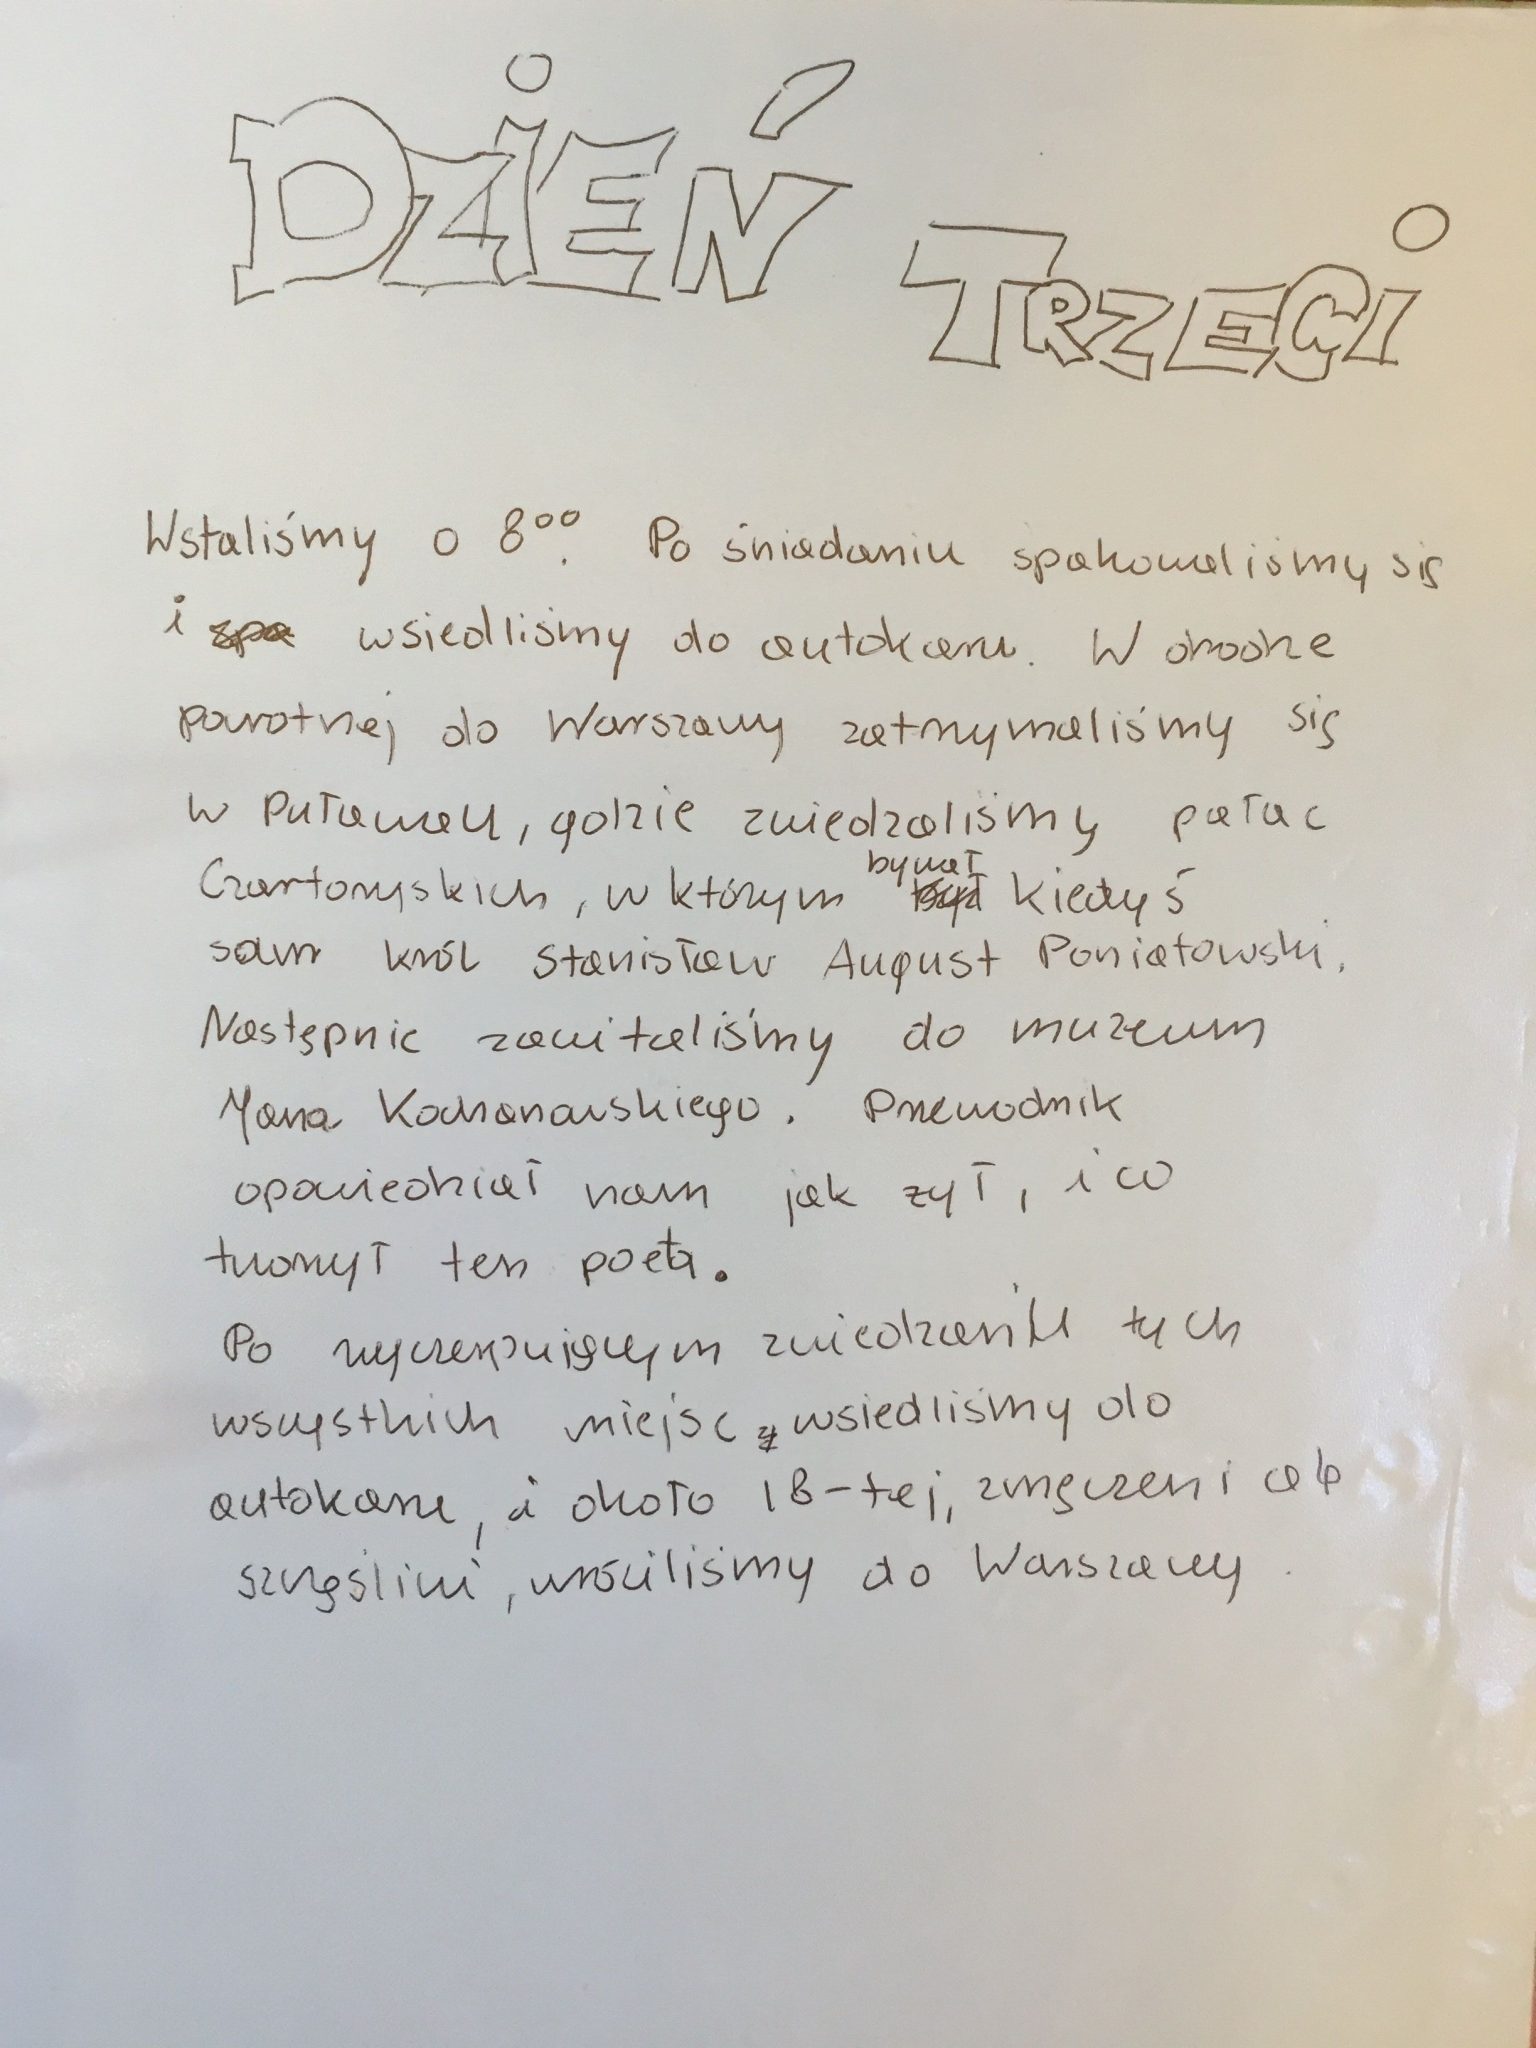 DZIEŃ TRZECI
Wstaliśmy o 8⁰⁰. Po śniadaniu spakowaliśmy się
i wsiedliśmy do autokaru. W drodze
powrotnej do Warszawy zatrzymaliśmy się
w Puławach, gdzie zwiedzaliśmy pałac
Czartoryskich, w którym bywał kiedyś
sam król Stanisław August Poniatowski.
Następnie zawitaliśmy do muzeum
Jana Kochanowskiego. Przewodnik
opowiedział nam jak żył, i co
tworzył ten poeta.
Po wyczerpującym zwiedzaniu tych
wszystkich miejsc wsiedliśmy do
autokaru, i około 18-tej, zmęczeni ale
szczęśliwi, wróciliśmy do Warszawy.